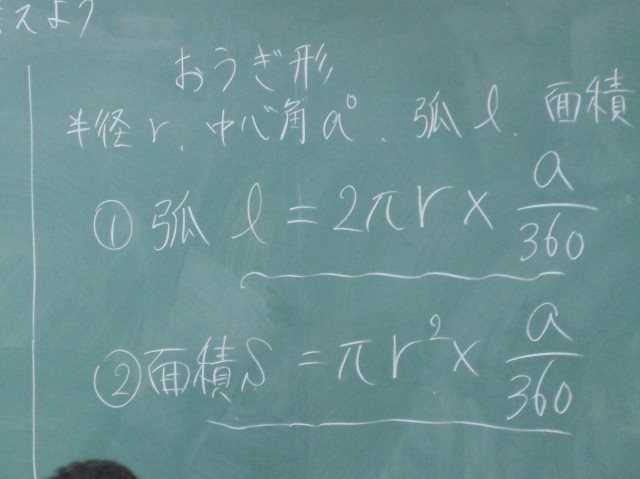 えよう
おうぎ形
半径r、中心角a°、弧ℓ、面積
① 弧 ℓ = 2πr × a/360
② 面積S = πr² × a/360